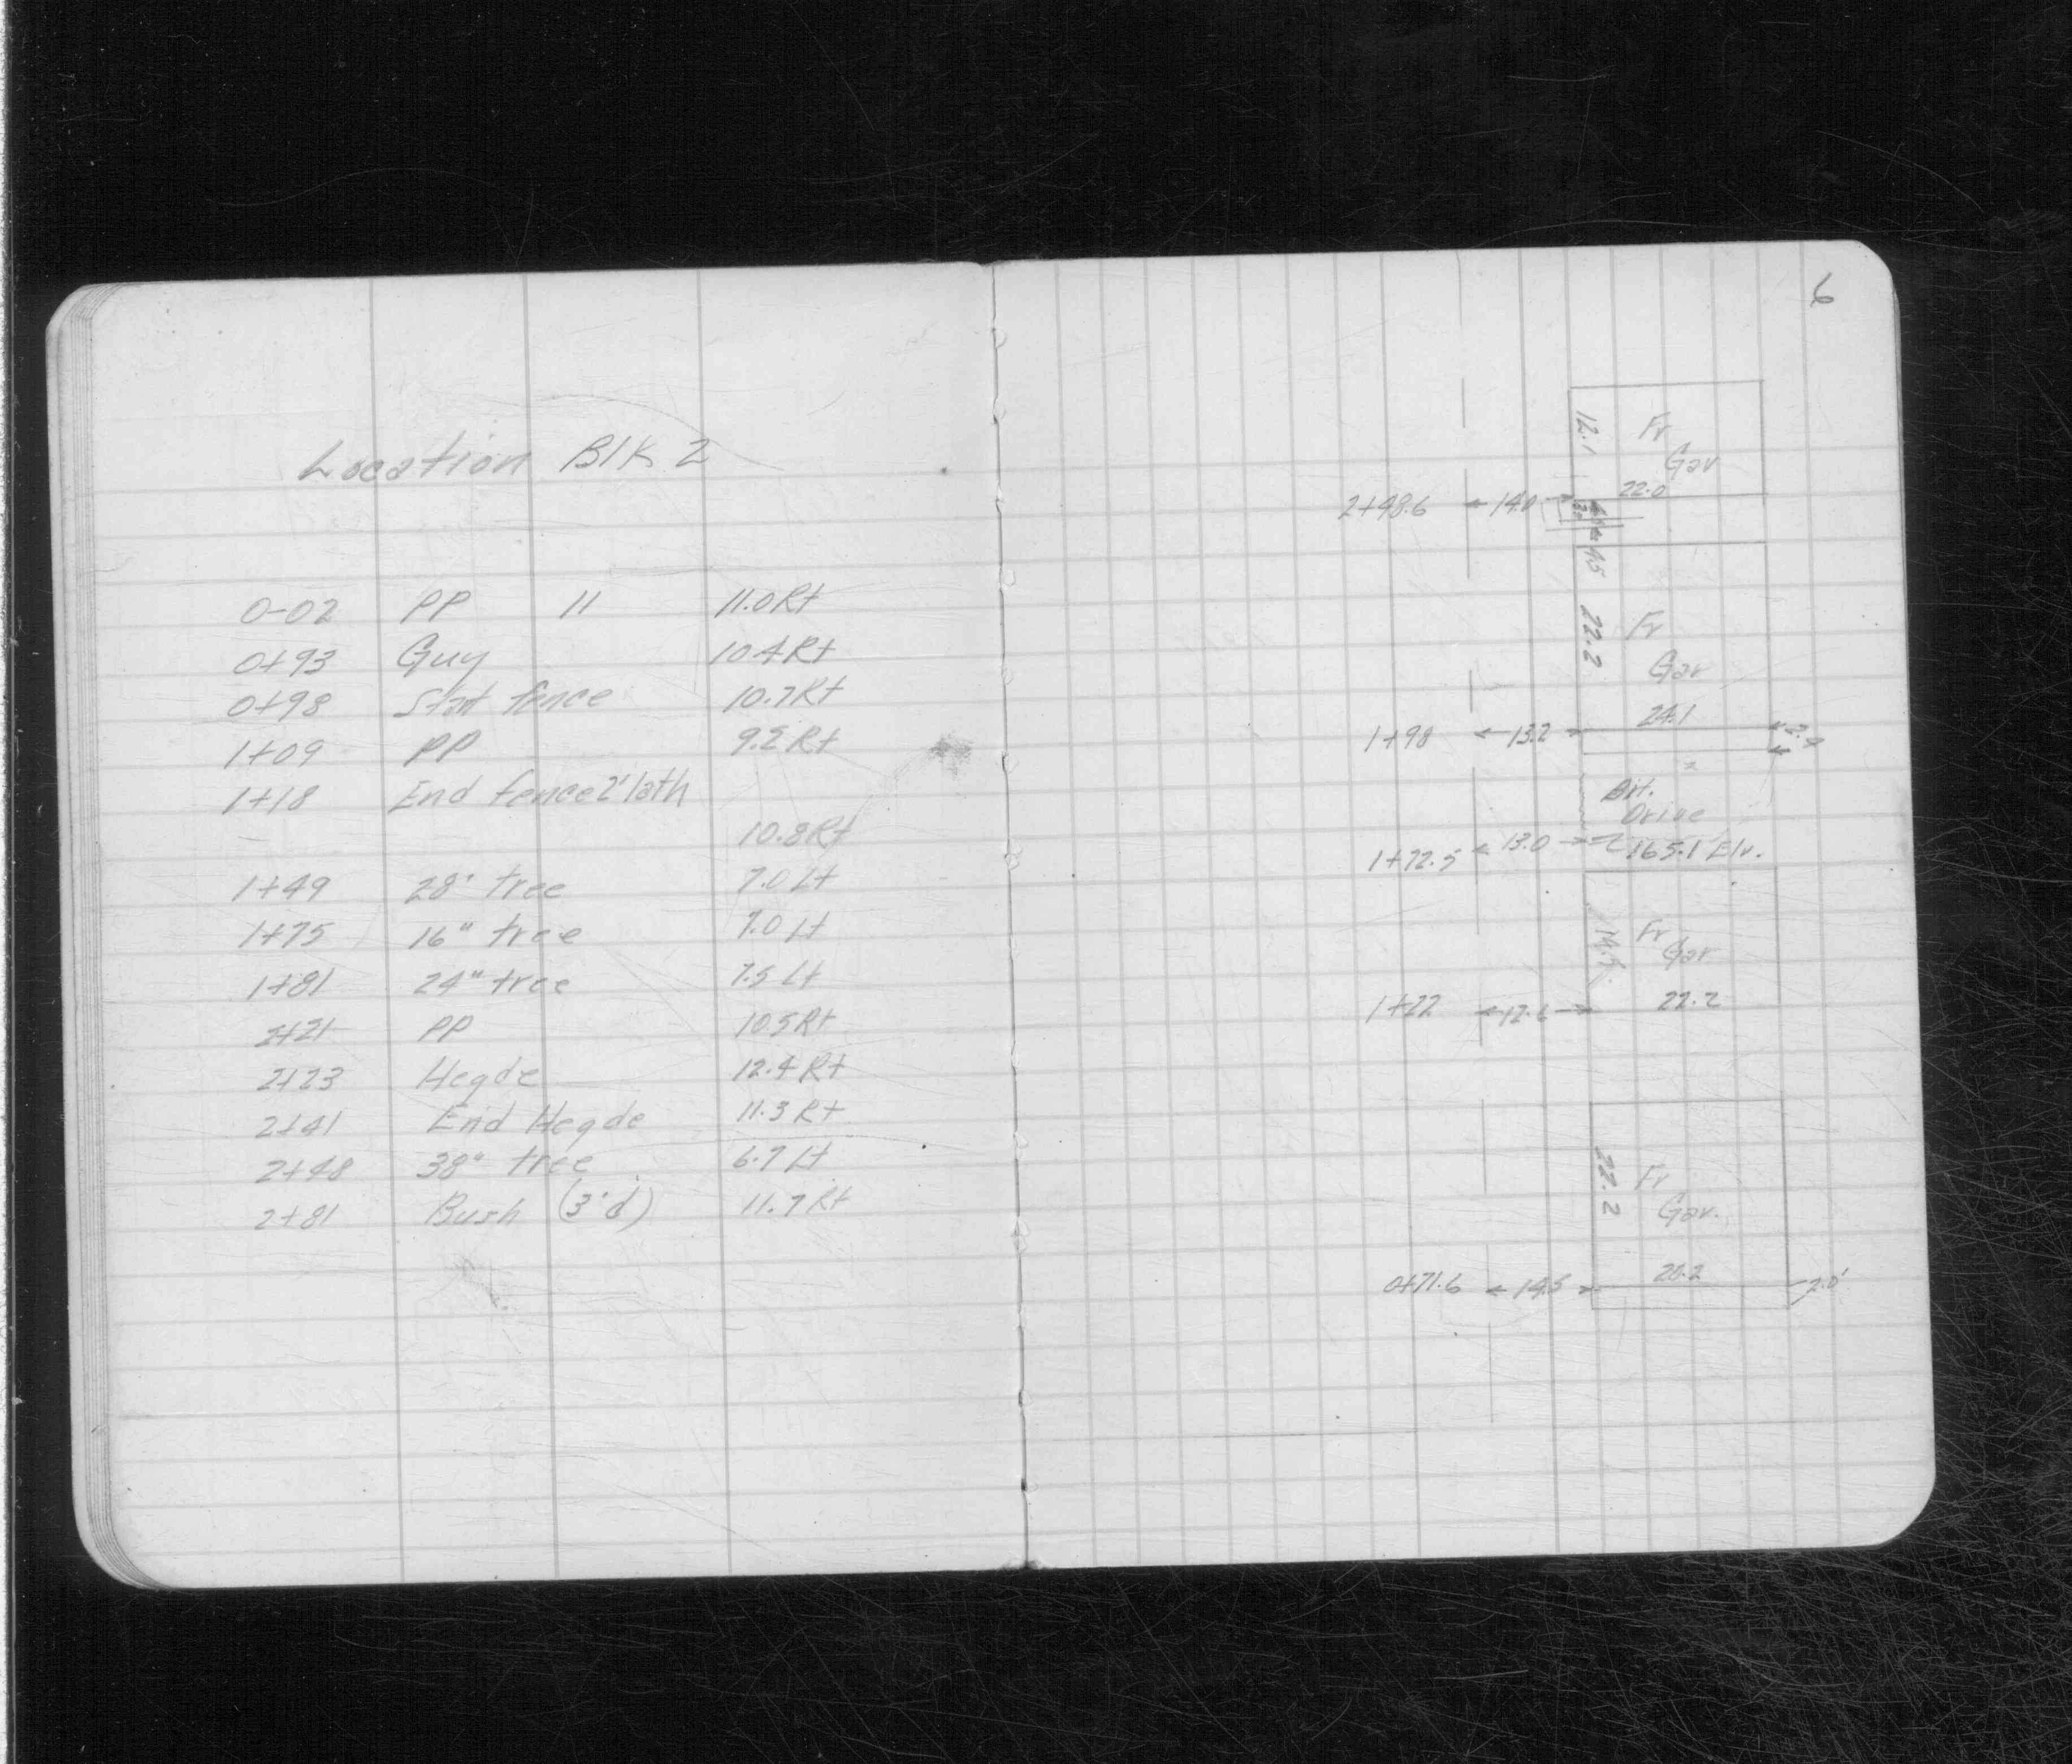 Location Blk 2
0-02 PP 11 11.0Rt
0+93 Guy 10.4Rt
0+98 Start fence 10.7Rt
1+09 PP 9.2Rt
1+18 End fence 2' lath
10.8Rt
1+49 28" tree 7.0Lt
1+75 16" tree 7.0Lt
1+81 24" tree 7.5Lt
2+21 PP 10.5Rt
2+23 Hegde 12.4Rt
2+41 End Hegde 11.3Rt
2+48 38" tree 6.7Lt
2+81 Bush (3'd) 11.7Rt
6
12.1 Fr
Gar
22.0
2+98.6 14.0
4.5
22.2 Fr
Gar
24.1
1+98 13.2 2.4
Bit.
Drive
1+72.5 13.0 165.1 Elv.
Fr
Gar
1+22 12.6 22.2
22.2 Fr
Gar.
20.2
0+71.6 14.5 2.0'